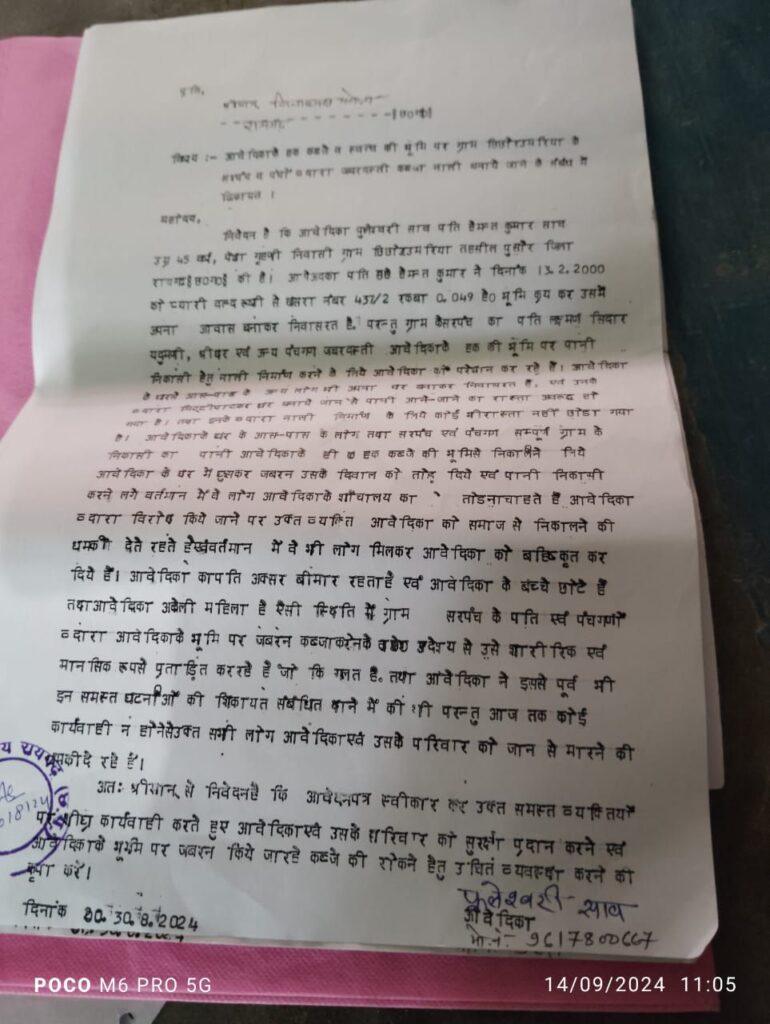 प्रति,
श्रीमान्
रायगढ़ --------[छ0ग0]
विषय :- आवेदिका के हक कब्जे व स्वत्व की भूमि पर ग्राम छिछोरउमरिया के
सरपंच व पंचों व्दारा जबरदस्ती कब्जा नाली बनाये जाने के संबंध में
शिकायत ।
महोदय,
निवेदन है कि आवेदिका फुलेश्वरी साव पति हेमन्त कुमार साव
उम्र 45 वर्ष, पेशा गृहणी निवासी ग्राम छिछोरउमरिया तहसील पुसौर जिला
रायगढ़[छ0ग0] की है। आवेदिका पति हेमन्त कुमार ने दिनांक 13.2.2000
को प्यारी वल्द रूथी से खसरा नंबर 437/2 रकबा 0.049 हे0 भूमि क्रय कर उसमें
अपना आवास बनाकर निवासरत है, परन्तु ग्राम के सरपंच का पति लक्ष्मण सिदार
यदुमणी, श्रीधर एवं अन्य पंचगण जबरदस्ती आवेदिका के हक की भूमि पर पानी
निकासी हेतु नाली निर्माण करने के लिये आवेदिका को परेशान कर रहे हैं। आवेदिका
के घर के आस-पास के अन्य लोग भी अपना घर बनाकर निवासरत हैं, एवं उनके
व्दारा मिट्टी पाटकर घर बनाये जाने से पानी आने-जाने का रास्ता अवरूद्ध हो
गया है। तथा इनके व्दारा नाली निर्माण के लिये कोई भी रास्ता नहीं छोड़ा गया
है। आवेदिका के घर के आस-पास के लोग तथा सरपंच एवं पंचगण सम्पूर्ण ग्राम के
निकासी का पानी आवेदिका के ही हक कब्जे की भूमि से निकालने लिये
आवेदिका के घर में घुसकर जबरन उसके दिवाल को तोड़ दिये एवं पानी निकासी
करने लगे वर्तमान में वे लोग आवेदिका के शौचालय का तोडना चाहते हैं आवेदिका
व्दारा विरोध किये जाने पर उक्त व्यक्ति आवेदिका को समाज से निकालने की
धमकी देते रहते है एवं वर्तमान में वे भी लोग मिलकर आवेदिका को बहिष्कृत कर
दिये हैं। आवेदिका का पति अक्सर बीमार रहता है एवं आवेदिका के बच्चे छोटे हैं
तथा आवेदिका अकेली महिला है ऐसी स्थिति में ग्राम सरपंच के पति एवं पंचगणों
व्दारा आवेदिका के भूमि पर जबरन कब्जा करने के उद्देश्य से उसे शारीरिक एवं
मानसिक रूप से प्रताड़ित कर रहे हैं जो कि गलत है. तथा आवेदिका ने इससे पूर्व भी
इन समस्त घटनाओं की शिकायत संबंधित थाने में की थी परन्तु आज तक कोई
कार्यवाही न होने से उक्त सभी लोग आवेदिका एवं उसके परिवार को जान से मारने की
धमकी दे रहे हैं।
अतः श्रीमान् से निवेदन है कि आवेदन पत्र स्वीकार कर उक्त समस्त व्यक्तियों
पर शीघ्र कार्यवाही करते हुए आवेदिका एवं उसके परिवार को सुरक्षा प्रदान करने एवं
आवेदिका के भूमि पर जबरन किये जा रहे कब्जे की रोकने हेतु उचित व्यवस्था करने की
कृपा करें।
फुलेश्वरी साव
दिनांक 30.8.2024 आवेदिका
मो.नं.- 9617800667
POCO M6 PRO 5G 14/09/2024 11:05